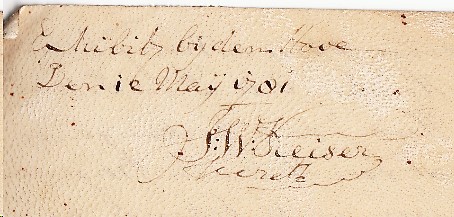 Exhibit by den Hove
Den 1e May 1781
J:W: Keiser
Secrets